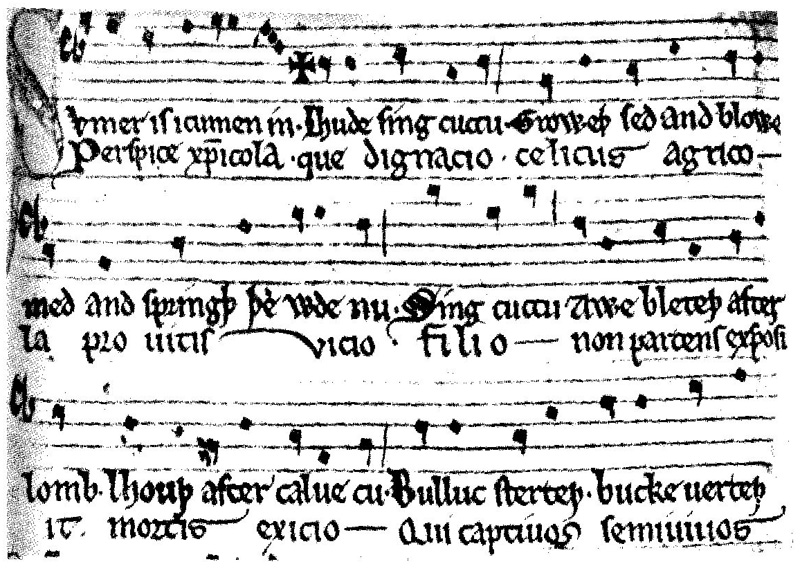 vmer is icumen in. Lhude sing cuccu. Groweþ sed and blowe
Perspice xp̅icola. que dignacio. celicus agrico
med and springþ þe wde nu. Sing cuccu Awe bleteþ after
la pro uitis vicio. filio non parcens exposi
lomb. lhouþ after calue cu. Bulluc sterteþ. bucke uerteþ
it mortis exicio Qui captiuos semiuiuos